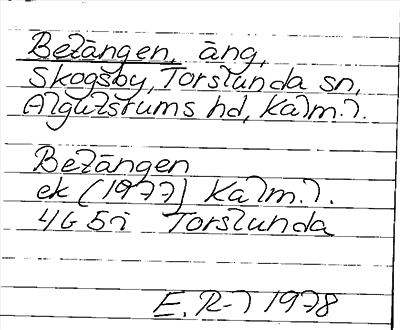 Betängen, äng,
Skogsby, Torslunda sn,
Algutsrums hd, Kalm. l.
Betängen
ek (1977) Kalm. l.
4G 5i Torslunda
E. R-l 1978